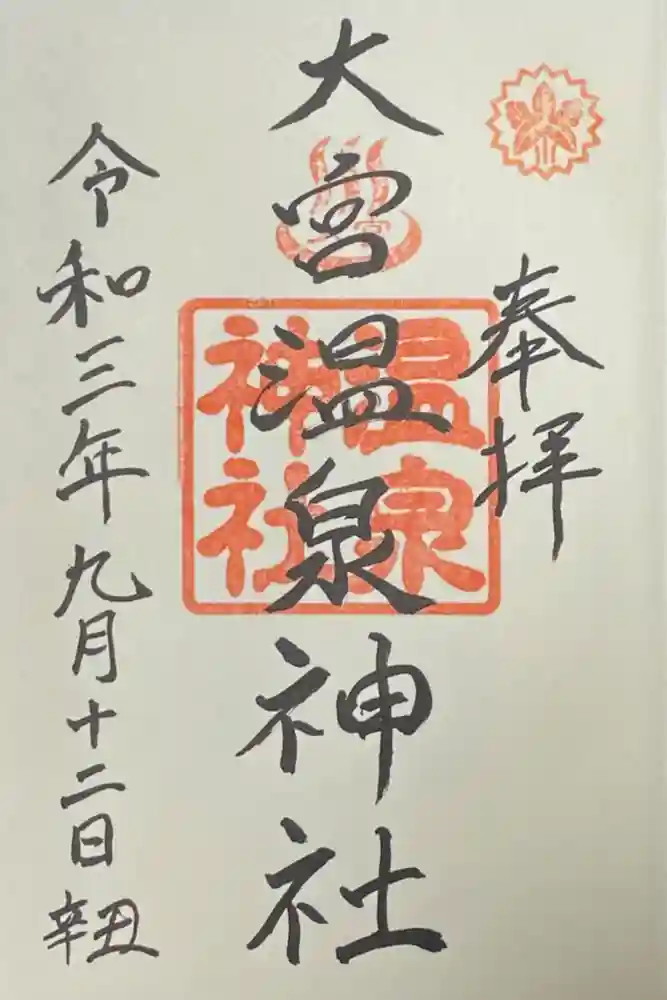 奉拝
大宮温泉神社
温泉
神社
令和三年九月十二日 辛丑